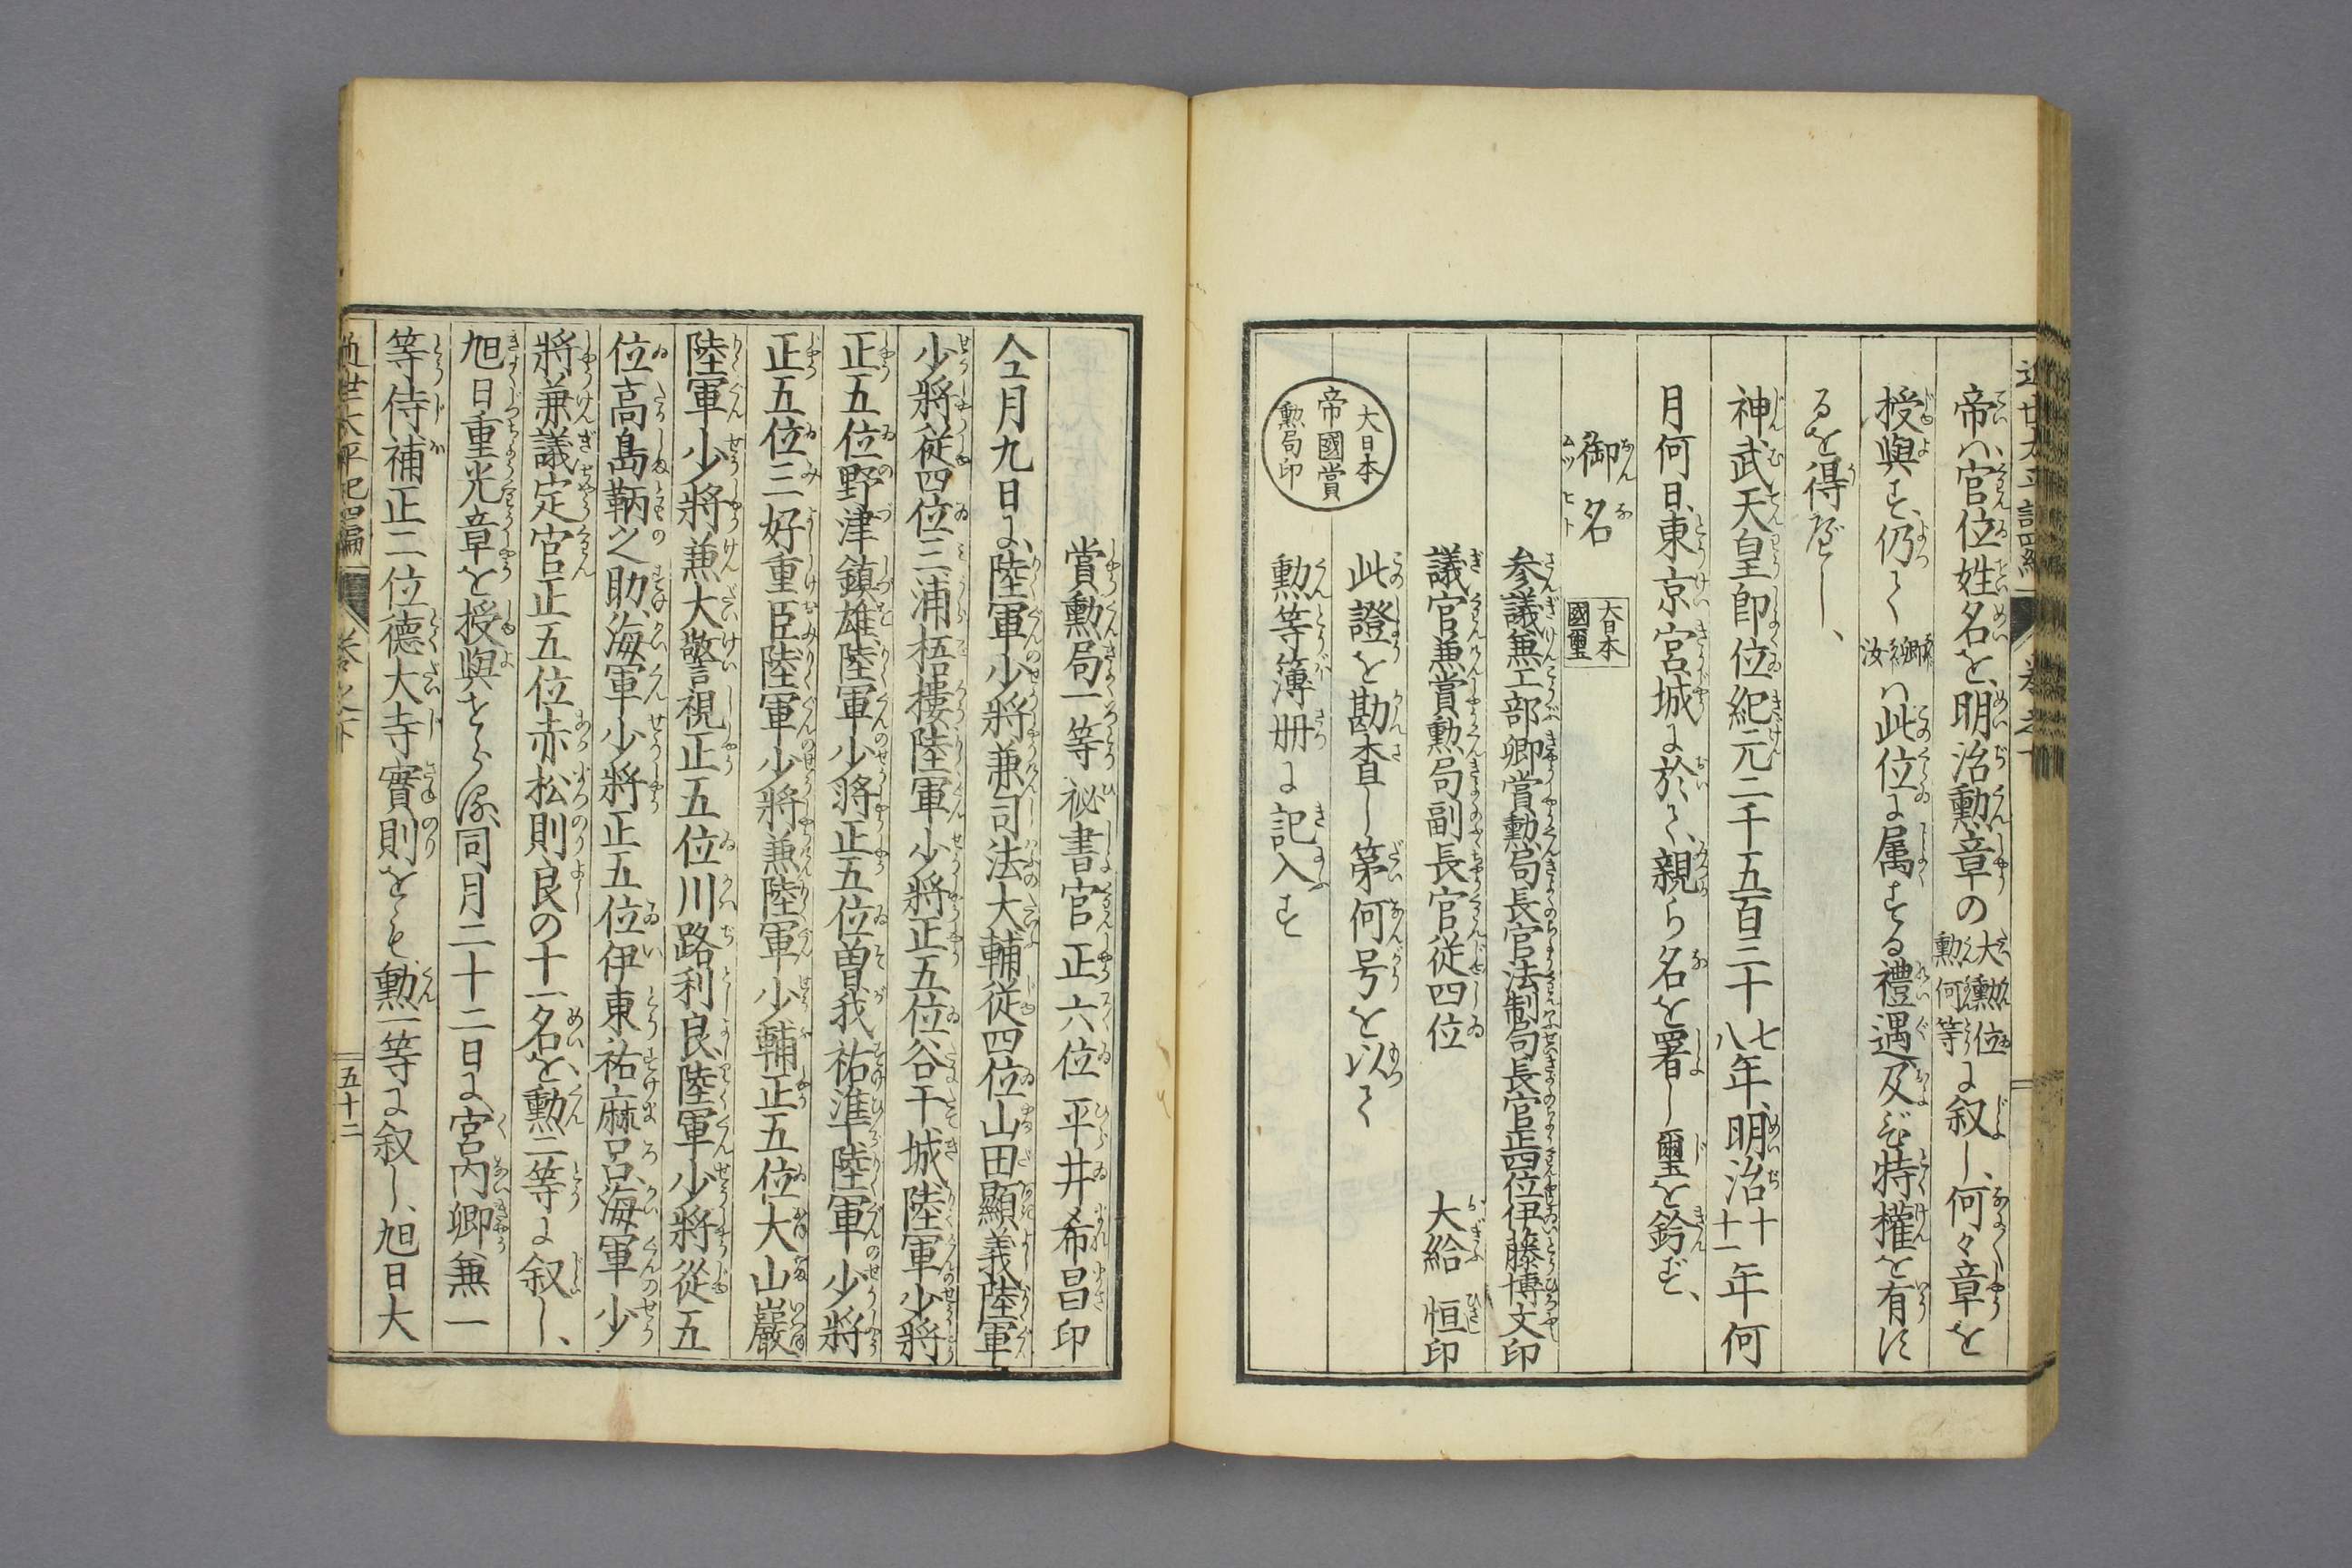 近世太平記四編 巻之下
帝ハ、官位姓名を、明治勲章の大勲位勲何等に叙し、何々章を
授與す、仍て卿汝ハ此位に属する禮遇及び特權を有す
るを得べし、
神武天皇即位紀元二千五百三十七八年、明治十十一年何
月何日、東京宮城に於て、親ら名を署し璽を鈐す、
御名 ムツヒト 大日本國璽
参議兼工部卿賞勲局長官法制局長官正四位伊藤博文印
議官兼賞勲局副長官従四位 大給 恒印
此證を勘査し第何号を以て
大日本帝國賞勲局印
勲等簿冊に記入す
賞勲局一等祕書官正六位 平井希昌印
仝月九日に、陸軍少將兼司法大輔従四位山田顯義陸軍
少將従四位三浦梧樓陸軍少將正五位谷干城、陸軍少將
正五位野津鎮雄、陸軍少将正五位曽我祐準陸軍少將
正五位三好重臣陸軍少將兼陸軍少輔正五位大山巖
陸軍少將兼大警視正五位川路利良、陸軍少將従五
位高島鞆之助海軍少將正五位伊東祐麻呂、海軍少
將兼議定官正五位赤松則良の十一名を、勲二等に叙し、
旭日重光章を授與せらる、同月二十二日に宮内卿兼一
等侍補正二位德大寺實則をも、勲一等に叙し、旭日大
近世太平記四編 巻之下 五十二